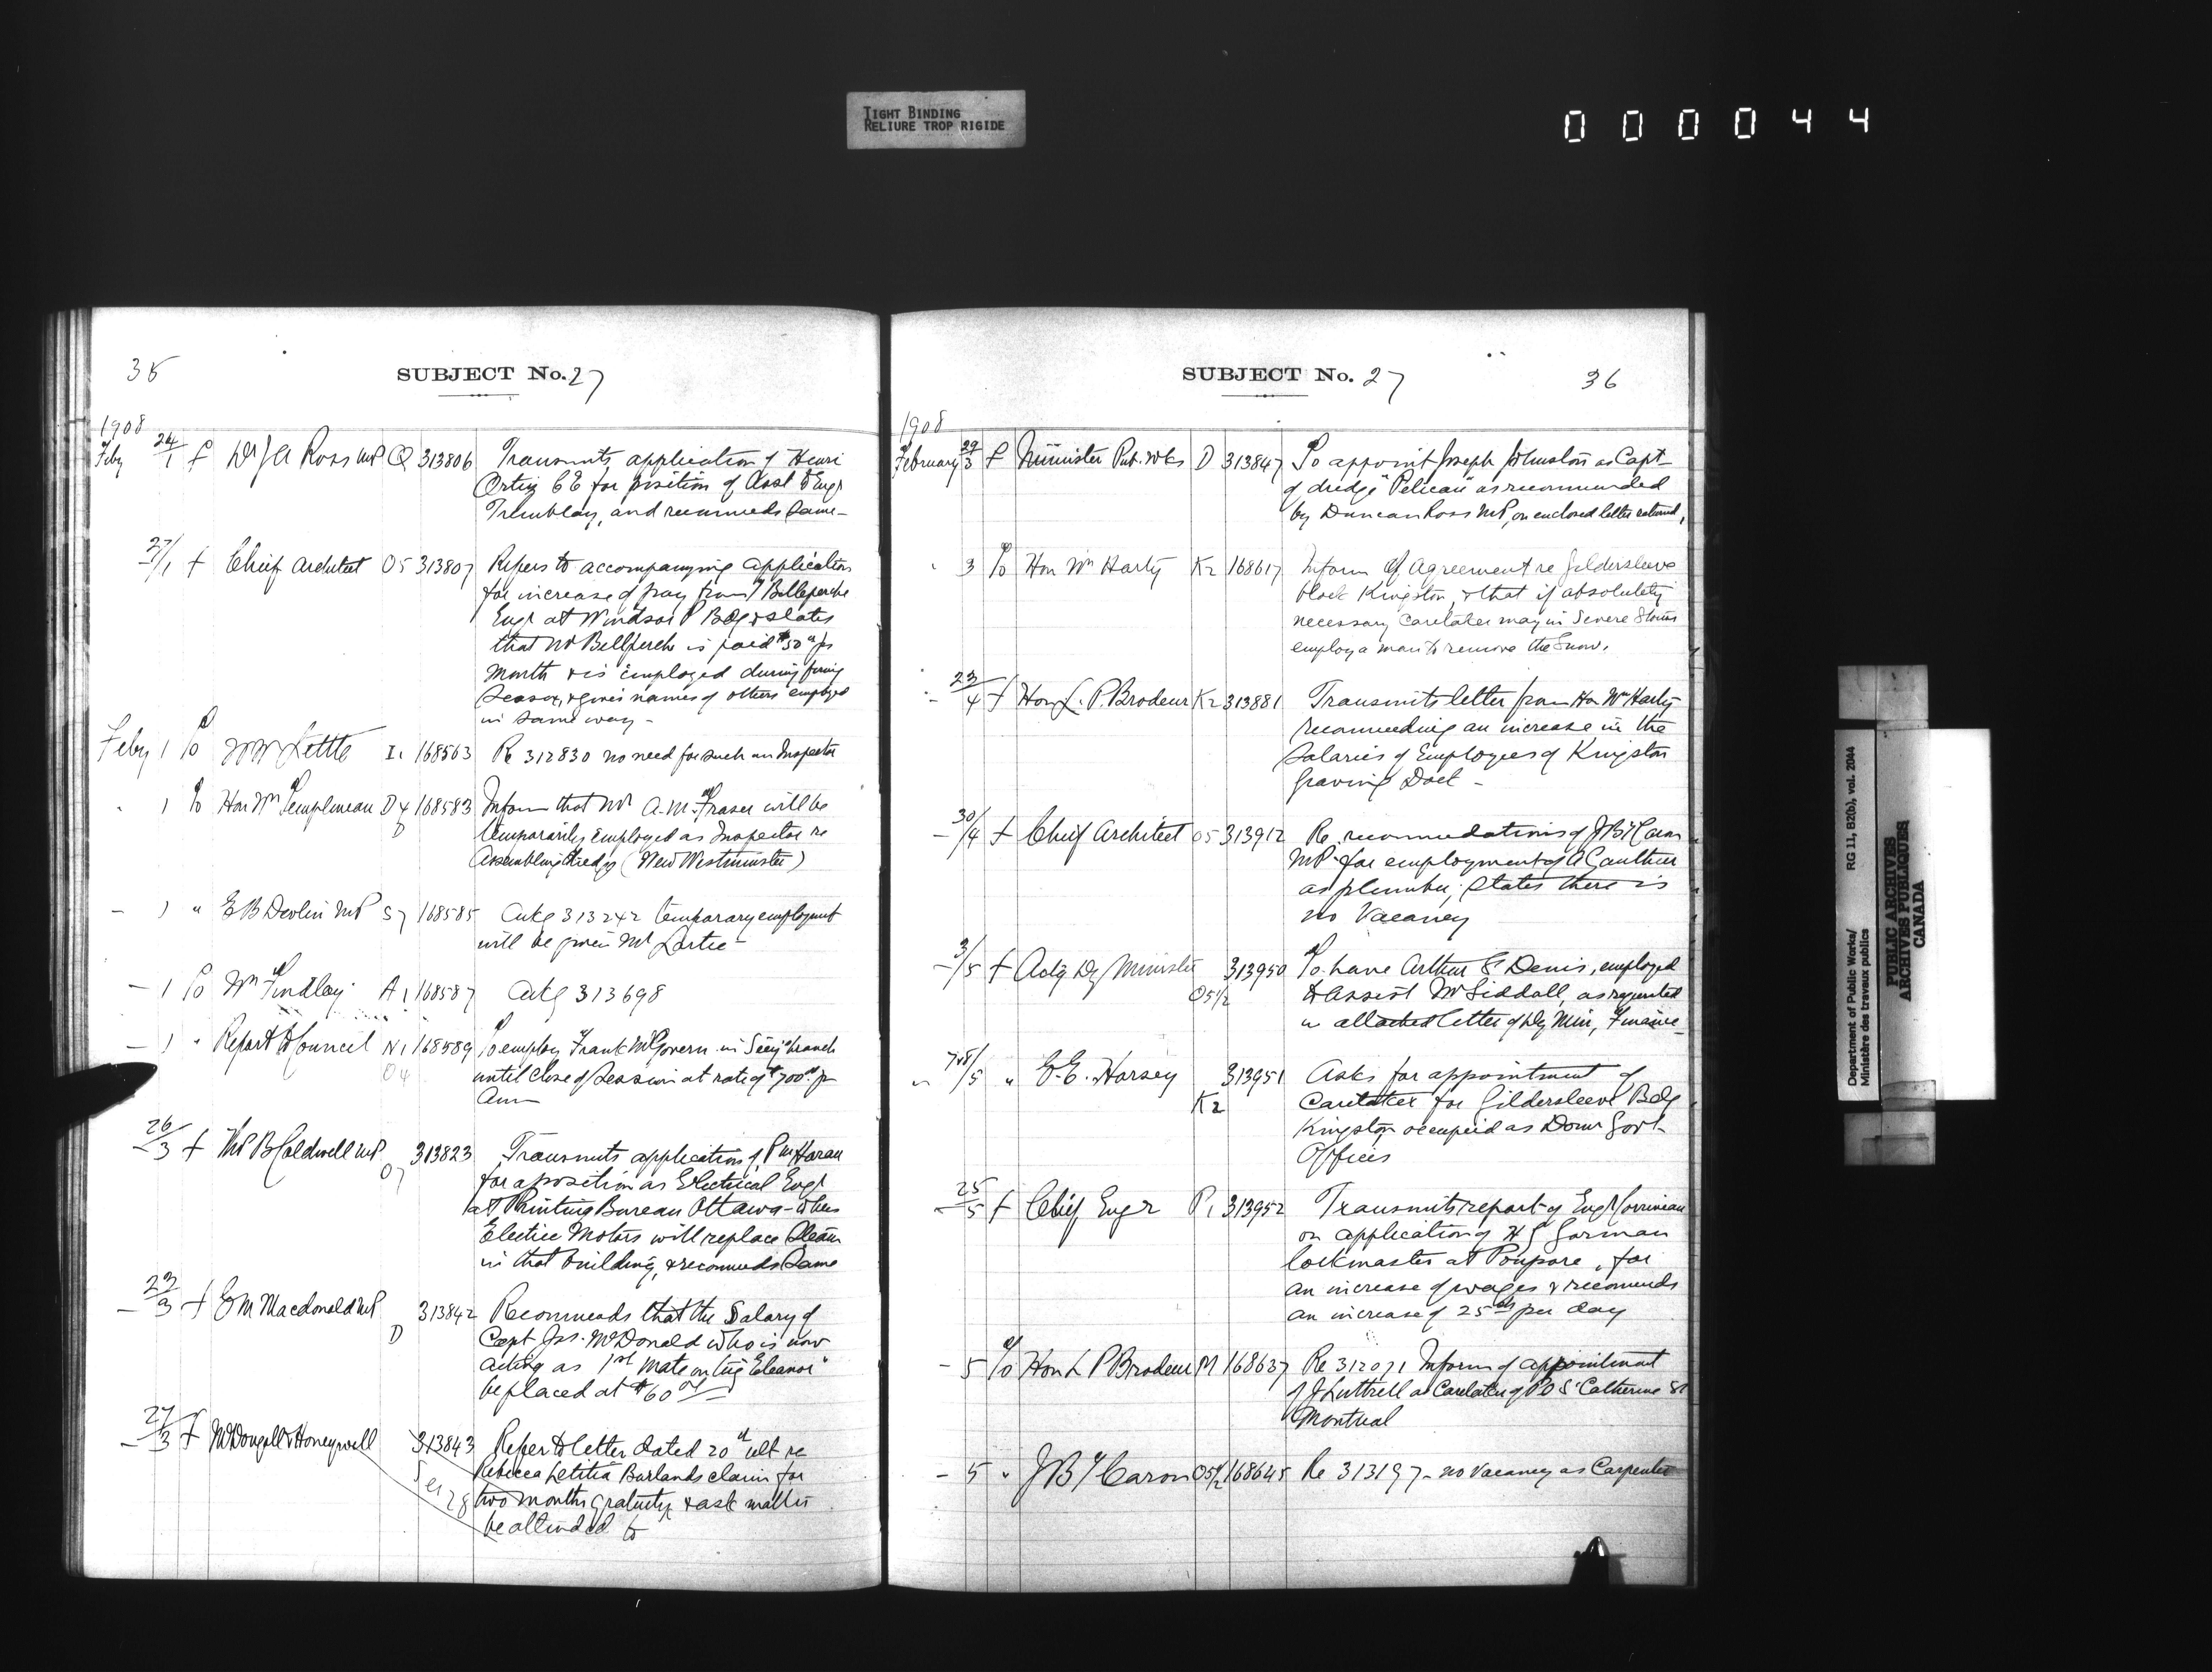 TIGHT BINDING
RELIURE TROP RIGIDE
000044
35
SUBJECT No. 27
1908
Feby 24/1 f Dr J A Ross MP Q 313806 Transmits application of Henri
Ortiz CE for position of Asst to Engr
Tremblay, and recommends same -
27/1 f Chief Architect O5 313807 Refers to accompanying application
for increase of pay from J Belleperche
Engr at Windsor P Bdg & states
that Mr Bellperche is paid $50 00 per
Month & is employed during firing
Season, & gives names of others employed
in same way -
Feby 1 To WW Lettle I1 168563 Re 312830 no need for such an Inspector
" 1 To Hon Wm Templeman D 168583 Inform that Mr A.M. Fraser will be
temporarily employed as Inspector re
Assembling dredge (New Westminster)
- 1 " E B Devlin MP S7 168585 Ackg 313242 temporary employment
will be given Mr Lortie -
- 1 To Wm Findlay A1 168587 Ackg 313698
- 1 " Report to Council N1 168589 To employ Frank McGovern in Secy's branch
O4
until close of Session at rate of $700 00 pr
Ann
- 26/3 f B Caldwell MP 313823 Transmits application of P M Haran
O7
for a position as Electrical Engr
at Printing Bureau Ottawa - when
Electric Motors will replace Steam
in that building, & recommends Same
- 29/3 f E M Macdonald MP 313842 Recommends that the Salary of
D
Capt Jas. McDonald who is now
acting as 1st Mate on tug "Eleanor"
be placed at $60 00
- 27/3 f McDougall & Honeywell 313843 Refer to letter dated 20th ult re
Rebecca Letitia Burlands claim for
two months gratuity & ask matter
be attended to
SUBJECT No. 27
36
1908
February 29/3 f Minister Pub. Wks D 313847 To appoint Joseph Johnston as Capt
of dredge "Pelican" as recommended
by Duncan Ross MP, on enclosed letter returned,
" 3 To Hon Wm Harty K2 168617 Inform of Agreement re Gildersleeve
block Kingston, & that if absolutely
necessary Caretaker may in Severe Storms
employ a man to remove the Snow.
- 23/4 f Hon L. P. Brodeur K2 313881 Transmits letter from Hon Wm Harty
recommending an increase in the
Salaries of Employees of Kingston
Graving Dock -
- 30/4 f Chief Architect O5 313912 Re recommendation of J B T Caron
MP for employment of A Gauthier
as plumber, States there is
no Vacancy
- 3/5 f Actg Dy Minister 313950 To have Arthur E Denis, employed
O5 1/2
to assist Mr Siddall, as requested
in attached letter of Dy Min, Finance -
" 5 " E. E. Horsey 313951 Asks for appointment of
K2
Caretaker for Gildersleeve Bdg
Kingston occupied as Dom Govt
Offices
- 25/5 f Chief Engr P1 313952 Transmits report of Engr Corriveau
on application of H G Gorman
lockmaster at Poupore, for
an increase of wages & recommends
an increase of 25 cts per day
- 5 To Hon L P Brodeur M 168637 Re 312071 Inform of appointment
of J Luttrell as Caretaker of P O St Catherine St
Montreal
- 5 " J B T Caron O5 1/2 168645 Re 313197 - no Vacancy as Carpenter
Department of Public Works/
Ministère des travaux publics
RG 11, B2(b), vol. 2044
PUBLIC ARCHIVES
ARCHIVES PUBLIQUES
CANADA